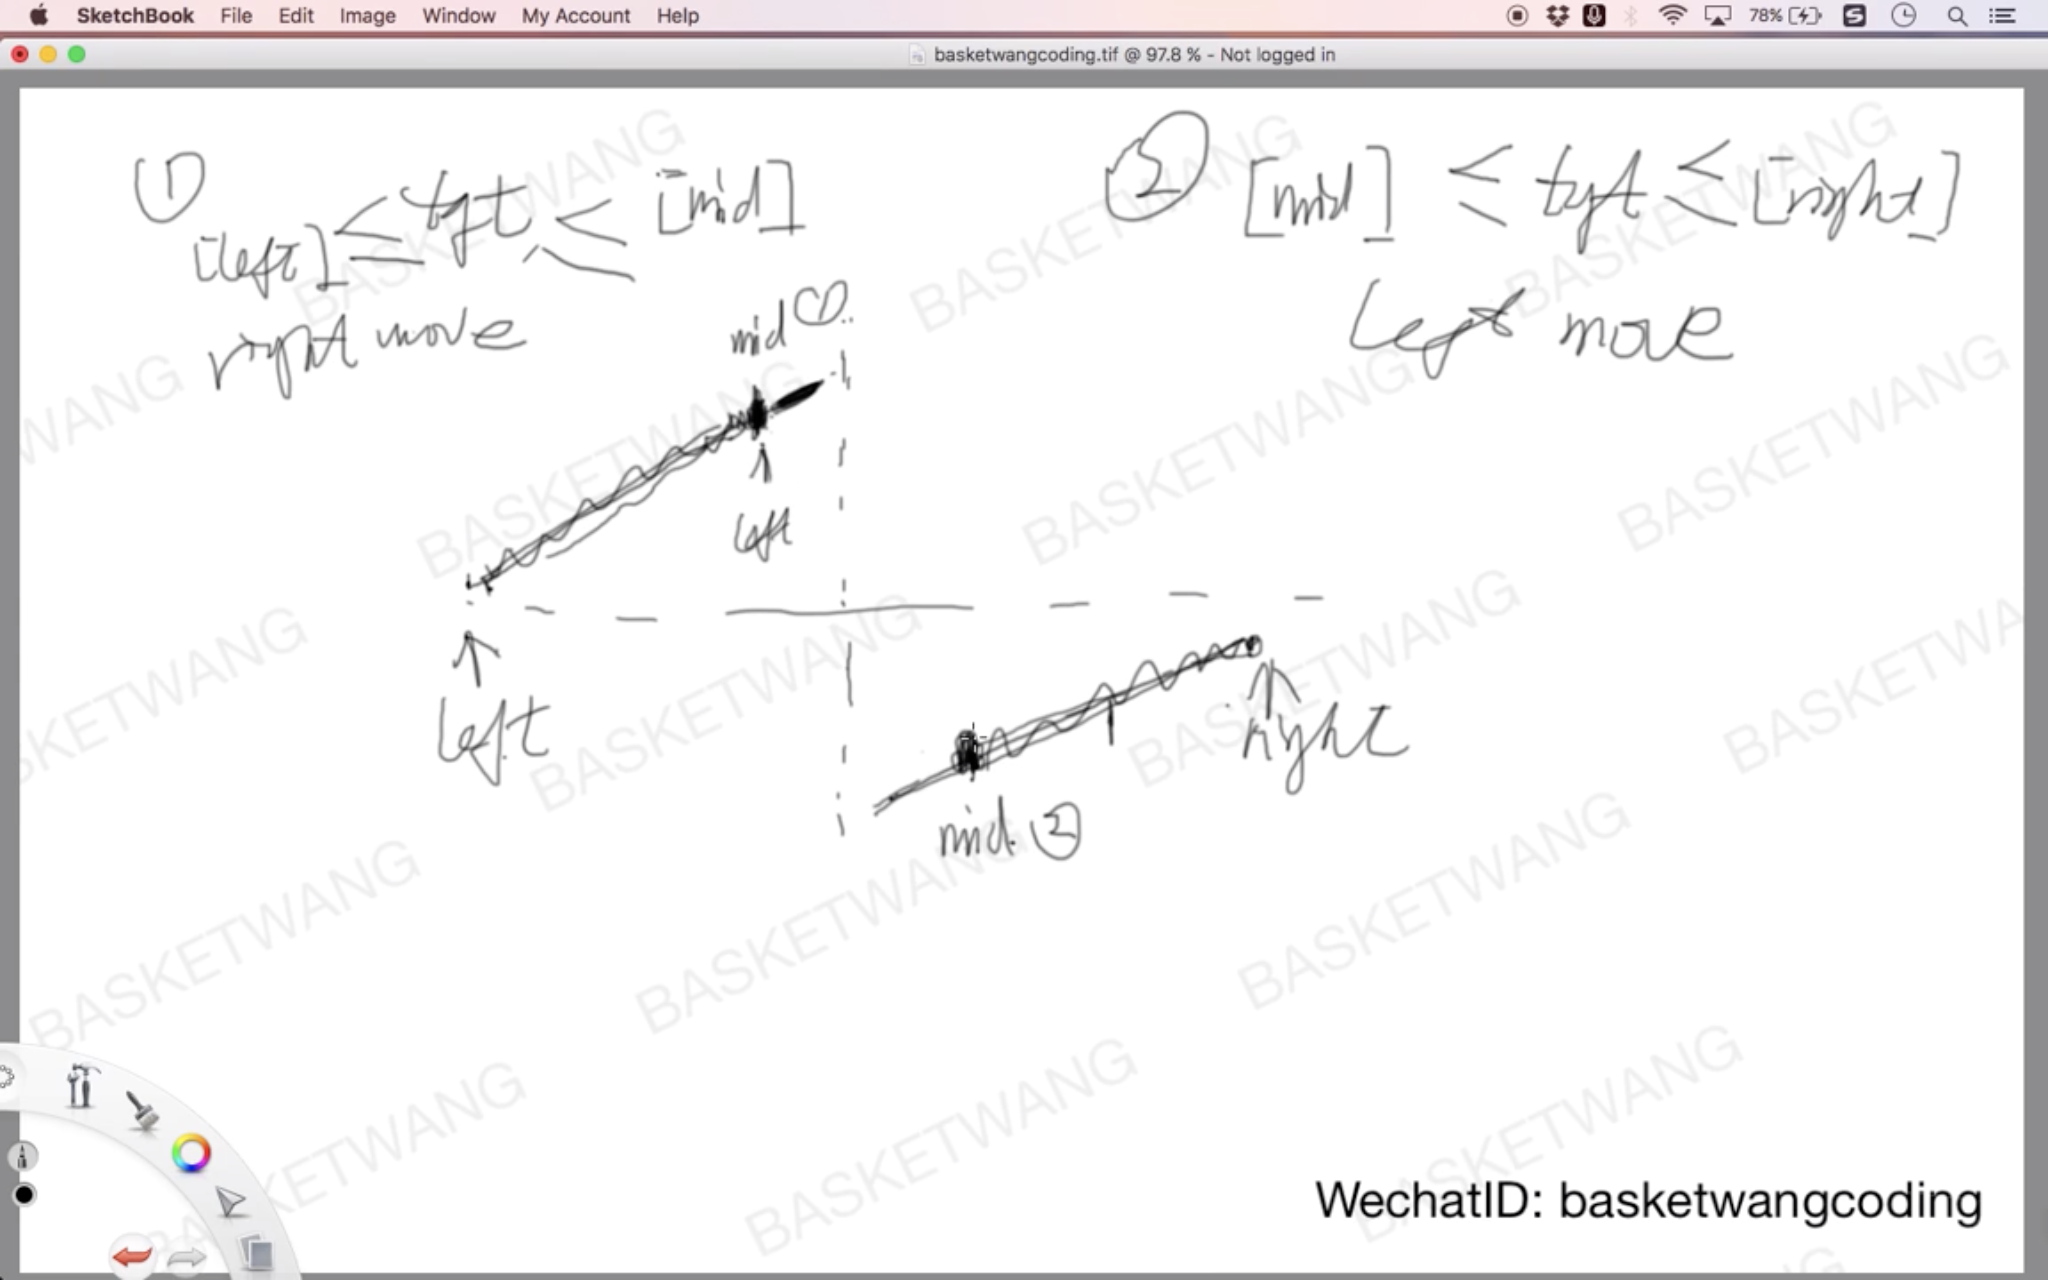 SketchBook File Edit Image Window My Account Help 78%
basketwangcoding.tif @ 97.8 % - Not logged in
① [left] ≤ tgt ≤ [mid]
right move
② [mid] ≤ tgt ≤ [right]
left move
mid ①
left
left
right
mid ②
BASKETWANG
WechatID: basketwangcoding